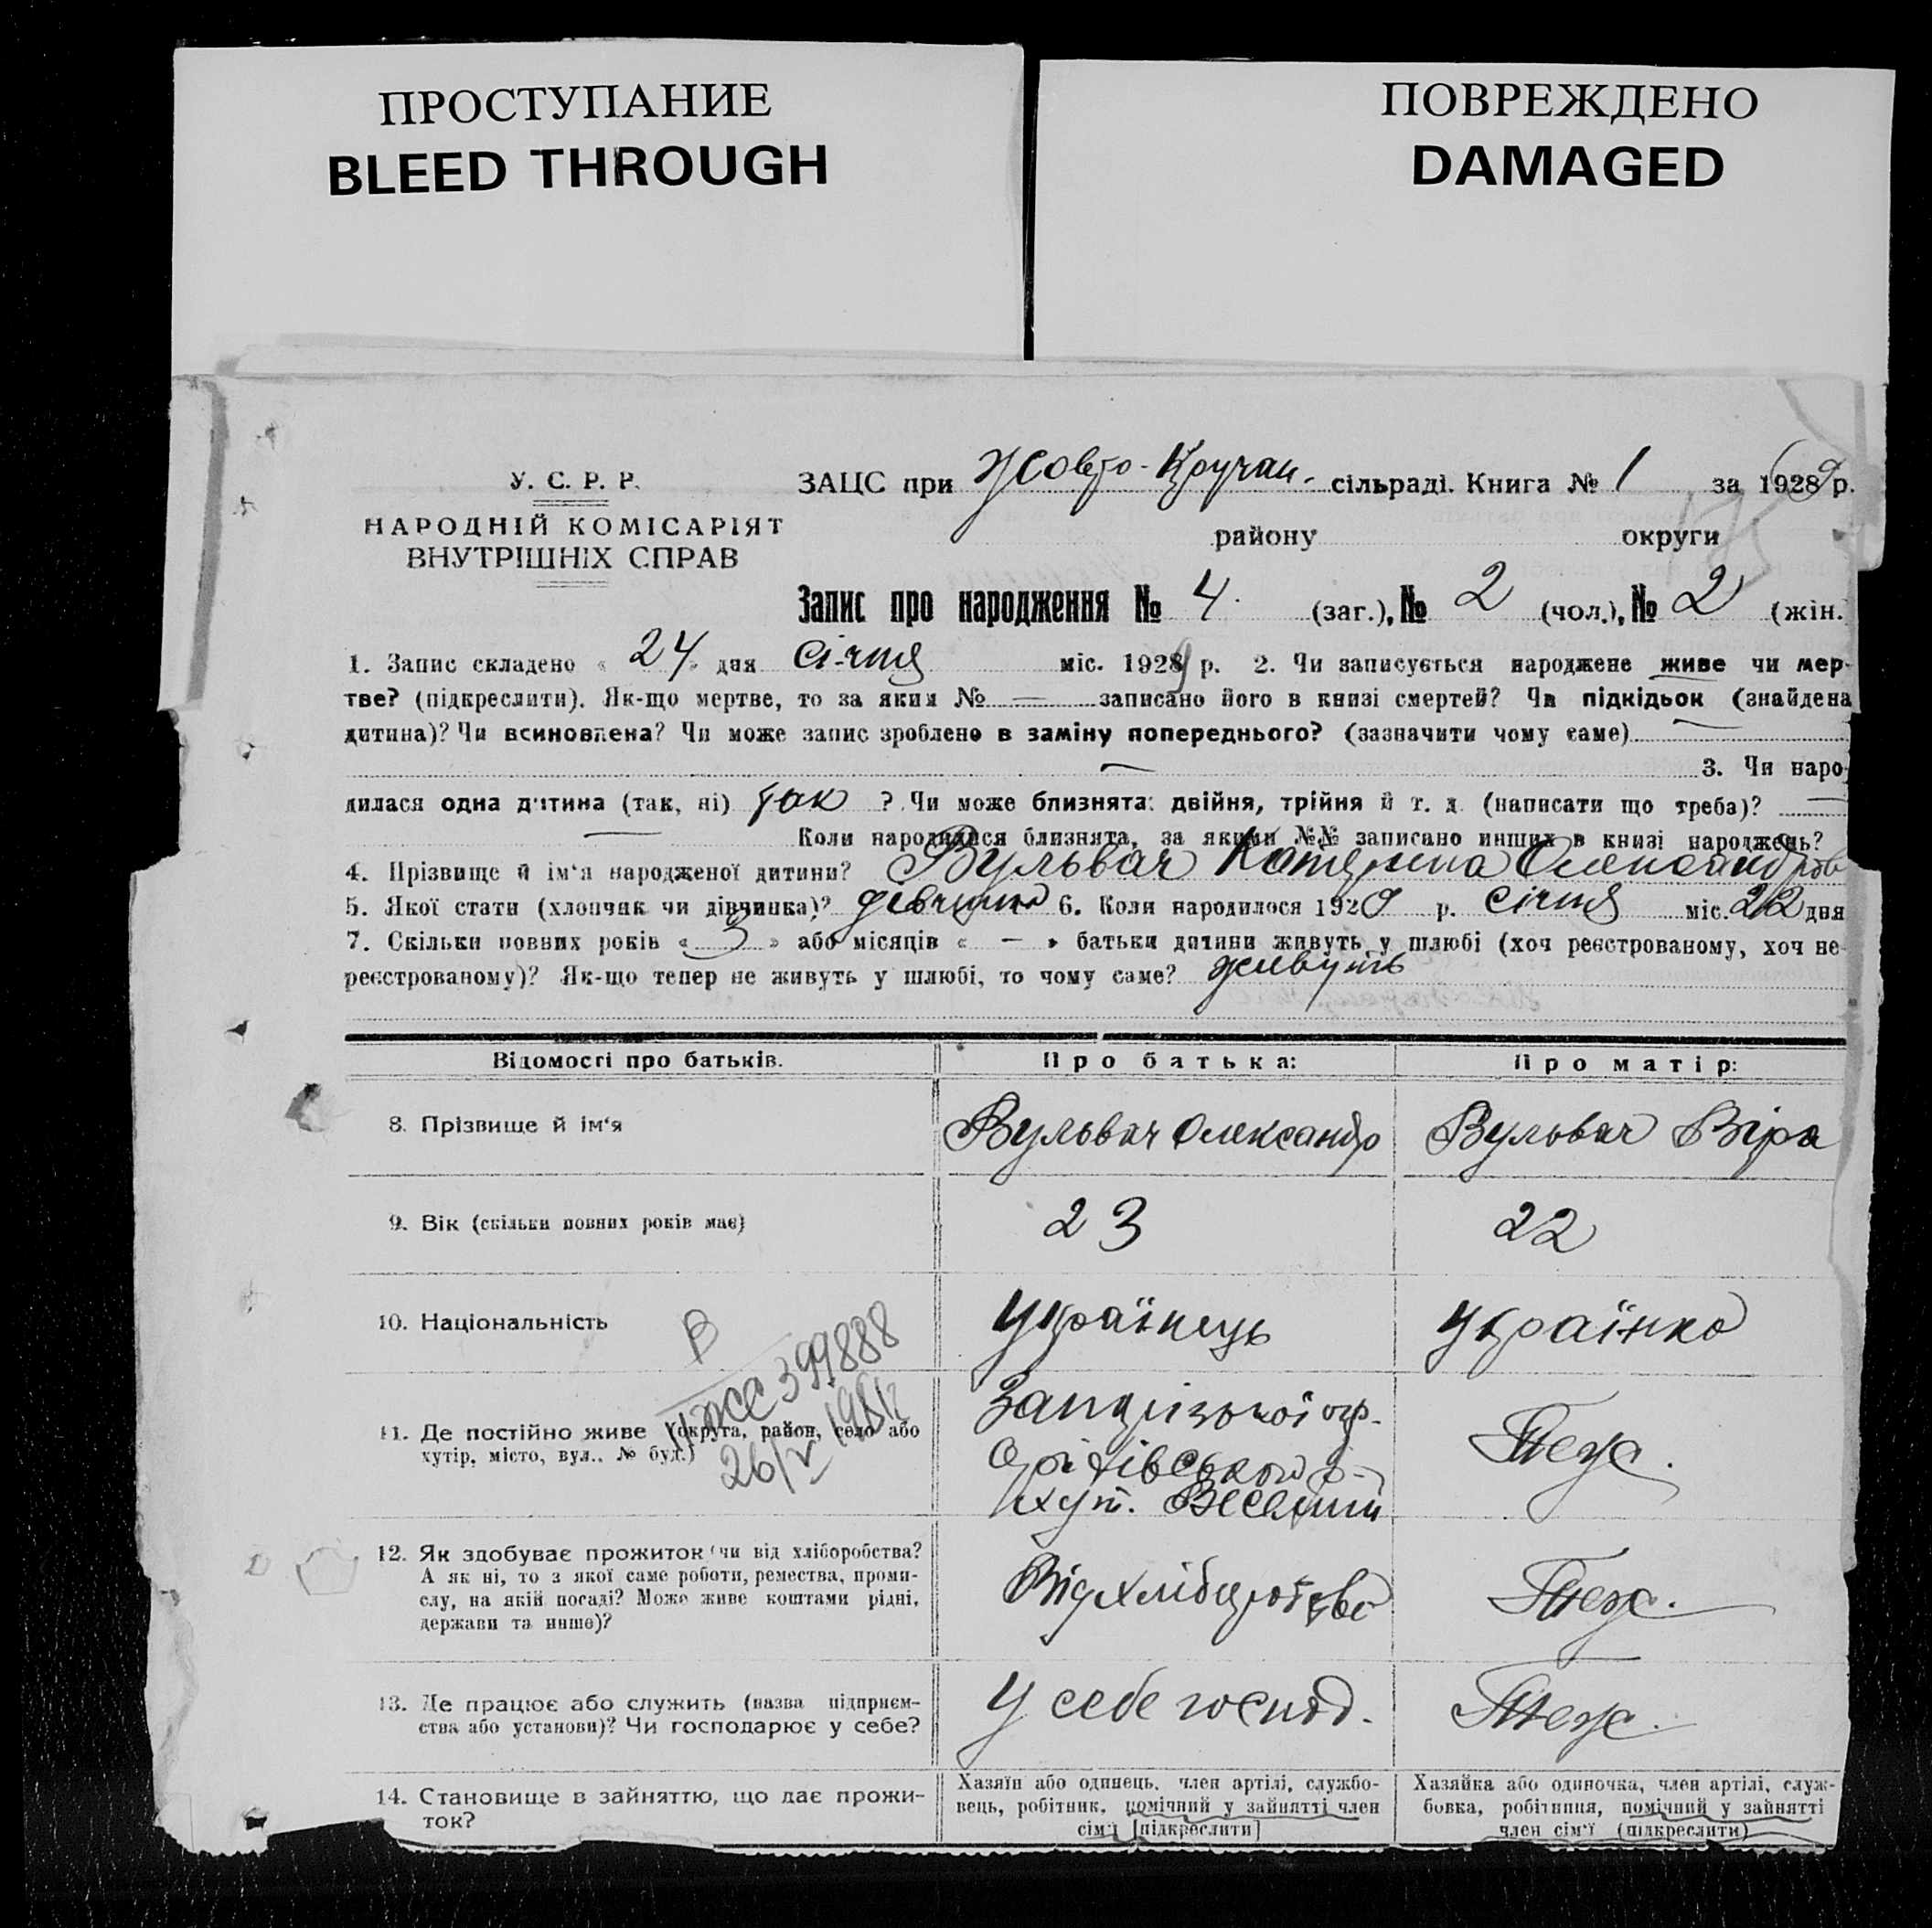 ПРОСТУПАНИЕ
BLEED THROUGH
ПОВРЕЖДЕНО
DAMAGED
У. С. Р. Р.
НАРОДНІЙ КОМІСАРІЯТ
ВНУТРІШНІХ СПРАВ
ЗАЦС при Жовто-Кручан. сільраді. Книга № 1 за 1929 р.
району округи
Запис про народження № 4. (заг.), № 2 (чол.), № 2 (жін.
1. Запис складено « 24 » дня січня міс. 1929 р. 2. Чи записується народжене живе чи мер-
тве? (підкреслити). Як-що мертве, то за яким № — записано його в книзі смертей? Чи підкідьок (знайдена
дитина)? Чи всиновлена? Чи може запис зроблено в заміну попереднього? (зазначити чому саме) —
— 3. Чи наро-
дилася одна дитина (так, ні) так ? Чи може близнята: двійня, трійня й т. д. (написати що треба)? —
— Коли народилися близнята, за якими №№ записано инших в книзі народжень?
4. Прізвище й ім'я народженої дитини? Вульвач Катерина Олександров
5. Якої стати (хлопчик чи дівчинка)? дівчинка 6. Коли народилося 1929 р. січня міс. 22 дня
7. Скільки повних років « 3 » або місяців « — » батьки дитини живуть у шлюбі (хоч реєстрованому, хоч не
реєстрованому)? Як-що тепер не живуть у шлюбі, то чому саме? живуть
Відомості про батьків.
Про батька:
Про матір:
8. Прізвище й ім'я
Вульвач Олександр
Вульвач Віра
9. Вік (скільки повних років має)
23
22
10. Національність
Українець
Українка
399888
26/V 1981
11. Де постійно живе (округа, район, село або
хутір, місто, вул., № буд.)
Запорізької окр.
Оріхівського р-
хут. Веселий
Теж.
12. Як здобуває прожиток (чи від хліборобства?
А як ні, то з якої саме роботи, ремества, проми-
слу, на якій посаді? Може живе коштами рідні,
держави та инше)?
Від хліборобства
Теж.
13. Де працює або служить (назва підприєм-
ства або установи)? Чи господарює у себе?
У себе господ.
Теж.
14. Становище в зайняттю, що дає прожи-
ток?
Хазяїн або одинець, член артілі, службо-
вець, робітник, помічний у зайнятті член
сім'ї [підкреслити]
Хазяйка або одиночка, член артілі, служ-
бовка, робітниця, помічний у зайнятті
член сім'ї (підкреслити)